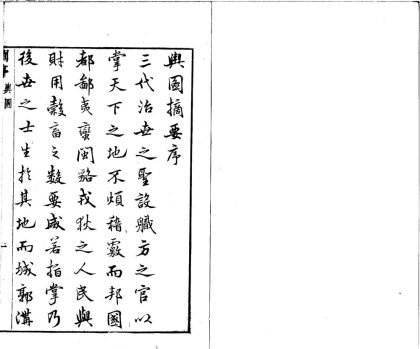 輿圖摘要序
三代治世之聖設職方之官以
掌天下之地不煩稽覈而邦國
都鄙夷蠻閩貉戎狄之人民與
財用穀畜之數要咸若指掌乃
後世之士生於其地而城郭溝
輿圖